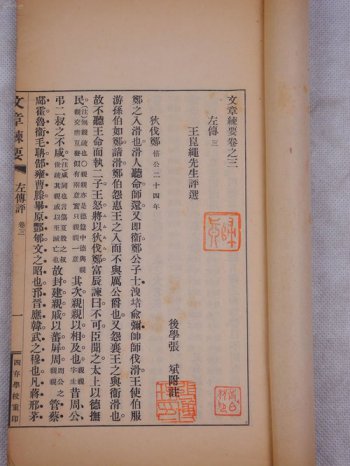 文章練要卷之三
左傳 三
王崑繩先生評選
後學張 斌附註
狄伐鄭 僖公二十四年
鄭之入滑也滑人聽命師還又即衛鄭公子士洩堵俞彌帥師伐滑王使伯服
游孫伯如鄭請滑鄭伯怨惠王之入而不與厲公爵也又怨襄王之與衛滑也
故不聽王命而執二子王怒將以狄伐鄭富辰諫曰不可臣聞之太上以德撫
民 其次親親以相及也 昔周公
弔二叔之不咸 故封建親戚以蕃屏周 管蔡
郕霍魯衛毛聃郜雍曹滕畢原酆郇文之昭也邘晉應韓武之穆也凡蔣邢茅
文章練要 左傳評 卷三 一 四存學校重印